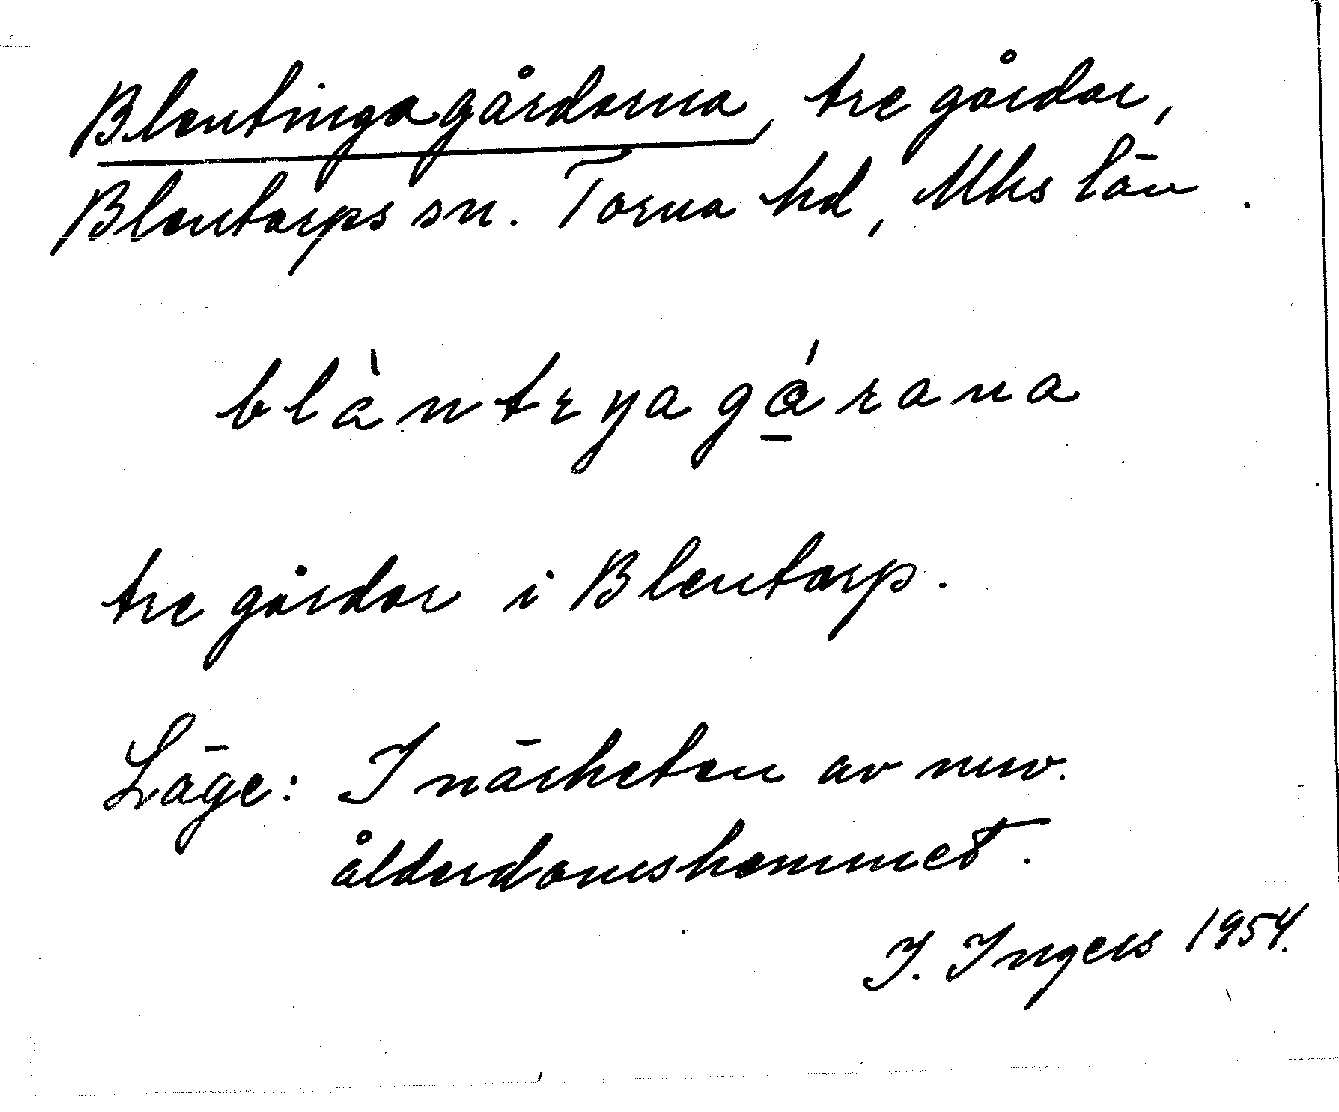 Blentingagårdarna, tre gårdar,
Blentarps sn. Torna hd, Mhs län.
blàntɪŋagǻrana
tre gårdar i Blentarp.
Läge: I närheten av nuv.
ålderdomshemmet.
I. Ingers 1954.